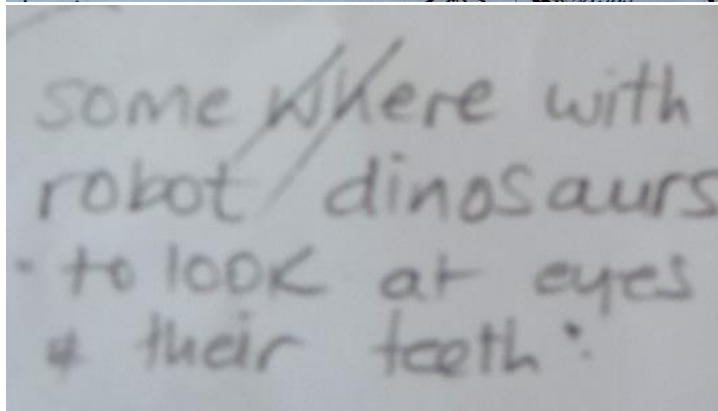 some where with
robot dinosaurs
- to look at eyes
& their teeth.